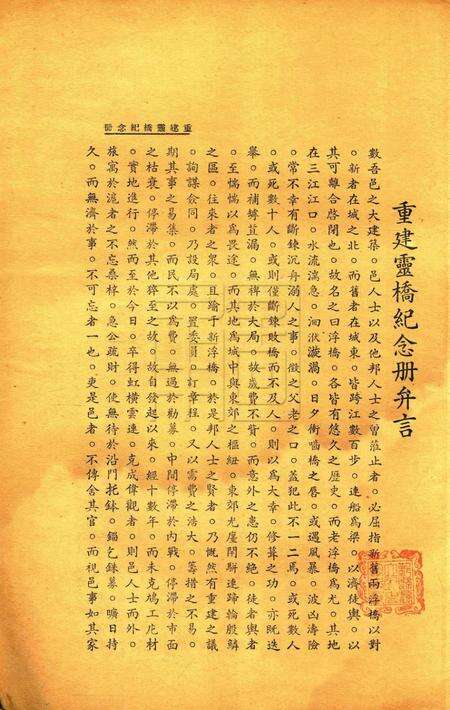 重建靈橋紀念冊
重建靈橋紀念册弁言
數吾邑之大建築。邑人士以及他邦人士之曾蒞止者。必屈指新舊兩浮橋以對
。新者在城之北。而舊者在城東。皆跨江數百步。連船爲梁。以濟徒輿。以
其可離合啓閉也。故名之曰浮橋。各皆有悠久之歷史。而老浮橋爲尤。其地
在三江江口。水流湍急。洄洑漩渦。日夕衝嚙橋之唇。或遇風暴。波凶濤險
。常不幸有斷鍊沉舟溺人之事。徵之父老之口。蓋犯此不一二焉。或死數人
。或死數十人。或則僅斷鍊敗橋而不及人。則以爲大幸。修葺之功。亦既迭
舉。而補罅苴漏。無裨於大局。故歲費不貲。而意外之患仍不絕。徒者輿者
。至惴惴以爲畏途。而其地爲城中與東郊之樞紐。東郊尤廛閈駢連蹄輪殷鱗
之區。往來者之衆。且踰于新浮橋。於是邦人士之賢者。乃慨然有重建之議
。詢謀僉同。乃設局處。置委員。訂章程。又以需費之浩大。籌措之不易。
期其事之易集。而民不以爲費。無過於勸募。中間停滯於內戰。停滯於市面
之枯衰。停滯於其他猝至之故。故自發起以來。經十數年。而未克鳩工庀材
。實地進行。然而至於今日。卒得虹橫雲連。克成偉觀者。則邑人士而外。
旅寓於滬者之不忘桑梓。急公疏財。使無待於沿門托鉢。錙乞銖募。曠日持
久。而無濟於事。不可忘者一也。吏是邑者。不傳舍其官。而視邑事如其家